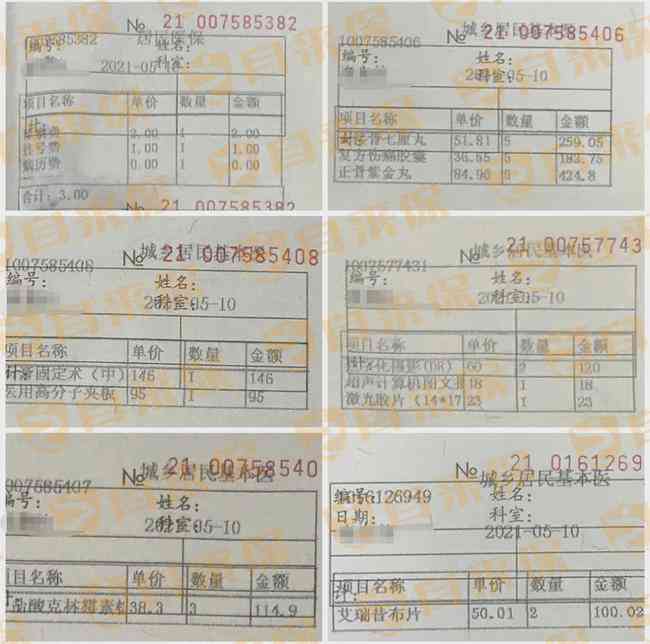 No 21 007585382
1007585382 居民医保
编号: 姓名:
2021-05-10 科室:
项目名称 单价 数量 金额
2.00 1 2.00
挂号费 1.00 1 1.00
病历费 0.00 1 0.00
合计: 3.00
No 21 007585382
城乡居民基本医
No 21 007585406
1007585406
编号: 姓名:
科室: 05-10
项目名称 单价 数量 金额
七厘丸 51.81 5 259.05
复方伤痛胶囊 36.65 5 183.75
正骨紫金丸 84.96 5 424.8
城乡居民基本医
No 21 007585408
1007585408
编号: 姓名:
科室: 05-10
项目名称 单价 数量 金额
固定术（中） 146 1 146
医用高分子夹板 95 1 95
城乡居民基本医
No 21 00757743
1007577431
编号: 姓名:
科室: 05-10
项目名称 单价 数量 金额
化摄影(DR) 60 2 120
超声计算机图文报 18 1 18
激光胶片（14*17 23 1 23
城乡居民基本医
No 21 00758540
007585407
编号: 姓名:
科室: 05-10
项目名称 单价 数量 金额
盐酸克林霉素 38.3 3 114.9
城乡居民基本医
No 21 0161269
编号: 126949 姓名:
日期: 科室:
2021-05-10
项目名称 单价 数量 金额
艾瑞昔布片 50.01 2 100.02